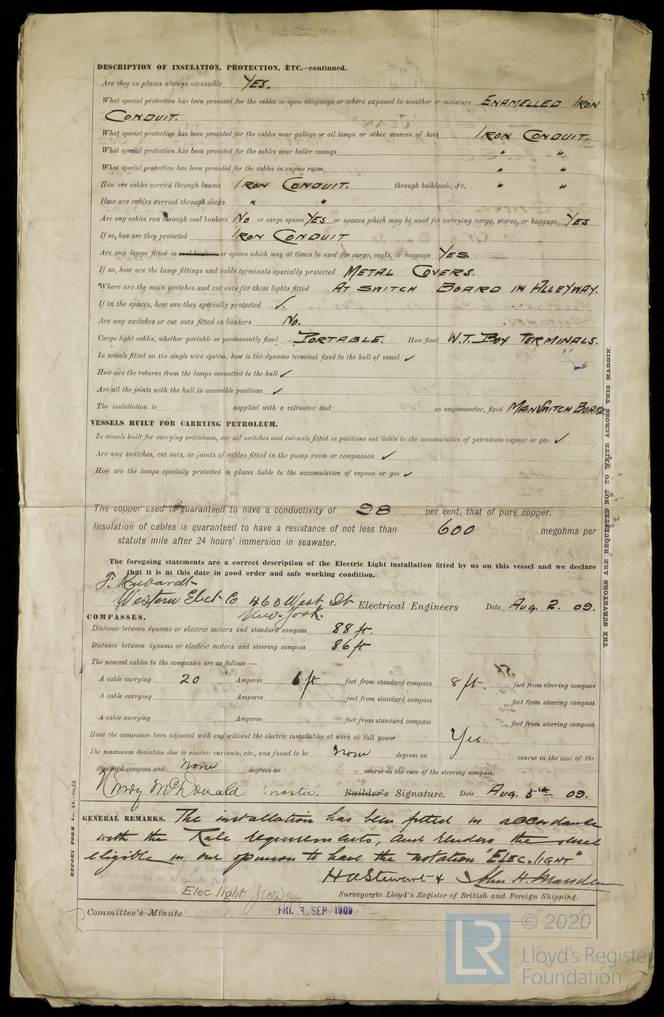 DESCRIPTION OF INSULATION, PROTECTION, ETC.—continued.
Are they in places always accessible YES.
What special protection has been provided for the cables in open alleyways or where exposed to weather or moisture ENAMELLED IRON
CONDUIT.
What special protection has been provided for the cables near galleys or oil lamps or other sources of heat IRON CONDUIT.
What special protection has been provided for the cables near boiler casings " "
What special protection has been provided for the cables in engine room " "
How are cables carried through beams IRON CONDUIT. through bulkheads, &c. " "
How are cables carried through decks " "
Are any cables run through coal bunkers NO or cargo spaces YES or spaces which may be used for carrying cargo, stores, or baggage YES
If so, how are they protected IRON CONDUIT
Are any lamps fitted in coal bunkers or spaces which may at times be used for cargo, coals, or baggage YES
If so, how are the lamp fittings and cable terminals specially protected METAL COVERS.
Where are the main switches and cut outs for these lights fitted AT SWITCH BOARD IN ALLEYWAY.
If in the spaces, how are they specially protected ✓
Are any switches or cut outs fitted in bunkers No.
Cargo light cables, whether portable or permanently fixed PORTABLE. How fixed W.T. BOX TERMINALS.
In vessels fitted on the single wire system, how is the dynamo terminal fixed to the hull of vessel ✓
How are the returns from the lamps connected to the hull ✓
Are all the joints with the hull in accessible positions ✓
The installation is supplied with a voltmeter and an amperemeter, fixed MAIN SWITCH BOARD
VESSELS BUILT FOR CARRYING PETROLEUM.
In vessels built for carrying petroleum, are all switches and cut-outs fitted in positions not liable to the accumulation of petroleum vapour or gas ✓
Are any switches, cut outs, or joints of cables fitted in the pump room or companion ✓
How are the lamps specially protected in places liable to the accumulation of vapour or gas ✓
The copper used is guaranteed to have a conductivity of 98 per cent. that of pure copper.
Insulation of cables is guaranteed to have a resistance of not less than 600 megohms per
statute mile after 24 hours' immersion in seawater.
The foregoing statements are a correct description of the Electric Light installation fitted by us on this vessel and we declare
that it is at this date in good order and safe working condition.
Western Elect Co 463 West St Electrical Engineers Date Aug. 2. 09.
New York.
COMPASSES.
Distance between dynamo or electric motors and standard compass 88 ft.
Distance between dynamo or electric motors and steering compass 86 ft
The nearest cables to the compasses are as follows:—
A cable carrying 20 Amperes 6 ft feet from standard compass 8 ft. feet from steering compass
A cable carrying Amperes feet from standard compass feet from steering compass
A cable carrying Amperes feet from standard compass feet from steering compass
Have the compasses been adjusted with and without the electric installation at work at full power Yes
The maximum deviation due to electric currents, etc., was found to be None degrees on course in the case of the
standard compass and None degrees on course in the case of the steering compass.
McDonald master Builder's Signature. Date Aug. 5th 09.
GENERAL REMARKS. The installation has been fitted in accordance
with the Rule requirements, and renders the vessel
eligible in our opinion to have the notation "ELEC. LIGHT"
H A Stewart & John H. Marsden
Surveyors to Lloyd's Register of British and Foreign Shipping.
Elec light
Committee's Minute FRI. 3 SEP 1909
THE SURVEYORS ARE REQUESTED NOT TO WRITE ACROSS THIS MARGIN.
© 2020
LR Lloyd's Register
Foundation